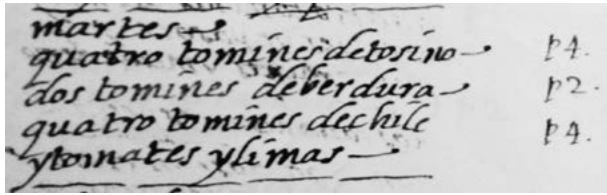 martes
quatro tomines detosino p4.
dos tomines deberdura p2.
quatro tomines dechile p4.
ytomates ylimas